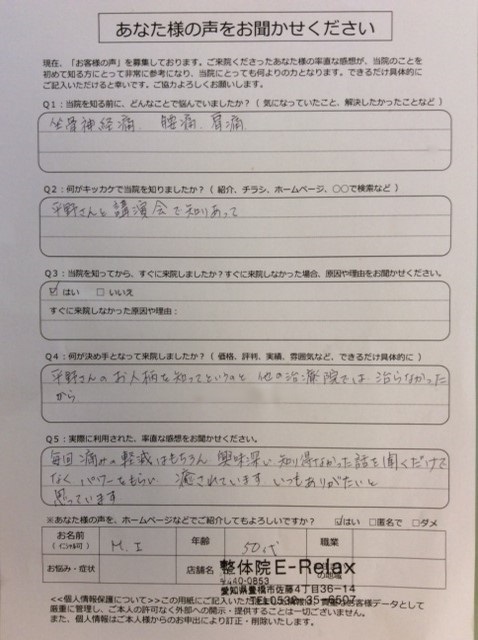 あなた様の声をお聞かせください
現在、「お客様の声」を募集しております。ご来院くださったあなた様の率直な感想が、当院のことを
初めて知る方にとって非常に参考になり、当院にとっても何よりの力となります。できるだけ具体的に
ご記入いただけると幸いです。ご協力よろしくお願いします。
Q1：当院を知る前に、どんなことで悩んでいましたか？（ 気になっていたこと、解決したかったことなど ）
坐骨神経痛、腰痛、肩痛
Q2：何がキッカケで当院を知りましたか？（ 紹介、チラシ、ホームページ、〇〇で検索など ）
平野さんと講演会で知りあって
Q3：当院を知ってから、すぐに来院しましたか？すぐに来院しなかった場合、原因や理由をお聞かせください。
☑ はい □ いいえ
すぐに来院しなかった原因や理由：
Q4：何が決め手となって来院しましたか？（ 価格、評判、実績、雰囲気など、できるだけ具体的に ）
平野さんのお人柄を知ってというのと 他の治療院では治らなかった
から
Q5：実際に利用された、率直な感想をお聞かせください。
毎回痛みの軽減はもちろん 興味深い知り得なかった話を聞くだけで
なく パワーをもらい 癒されています いつもありがたいと
思っています
※あなた様の声を、ホームページなどでご紹介してもよろしいですか？ ☑はい □匿名で □ダメ
お名前 M.I 年齢 50代 職業
（ｲﾆｼｬﾙ可）
お悩み・症状 店舗名 整体院 E-Relax の地域
〒440-0853
愛知県豊橋市佐藤4丁目36-14
<<個人情報保護について>>この用紙にご記入いただいた TEL0532-35-6507 客様データとして
厳重に管理し、ご本人の許可なく外部への開示・提供することは一切ございません。
また、個人情報はご本人様からのお申出により訂正・削除いたします。